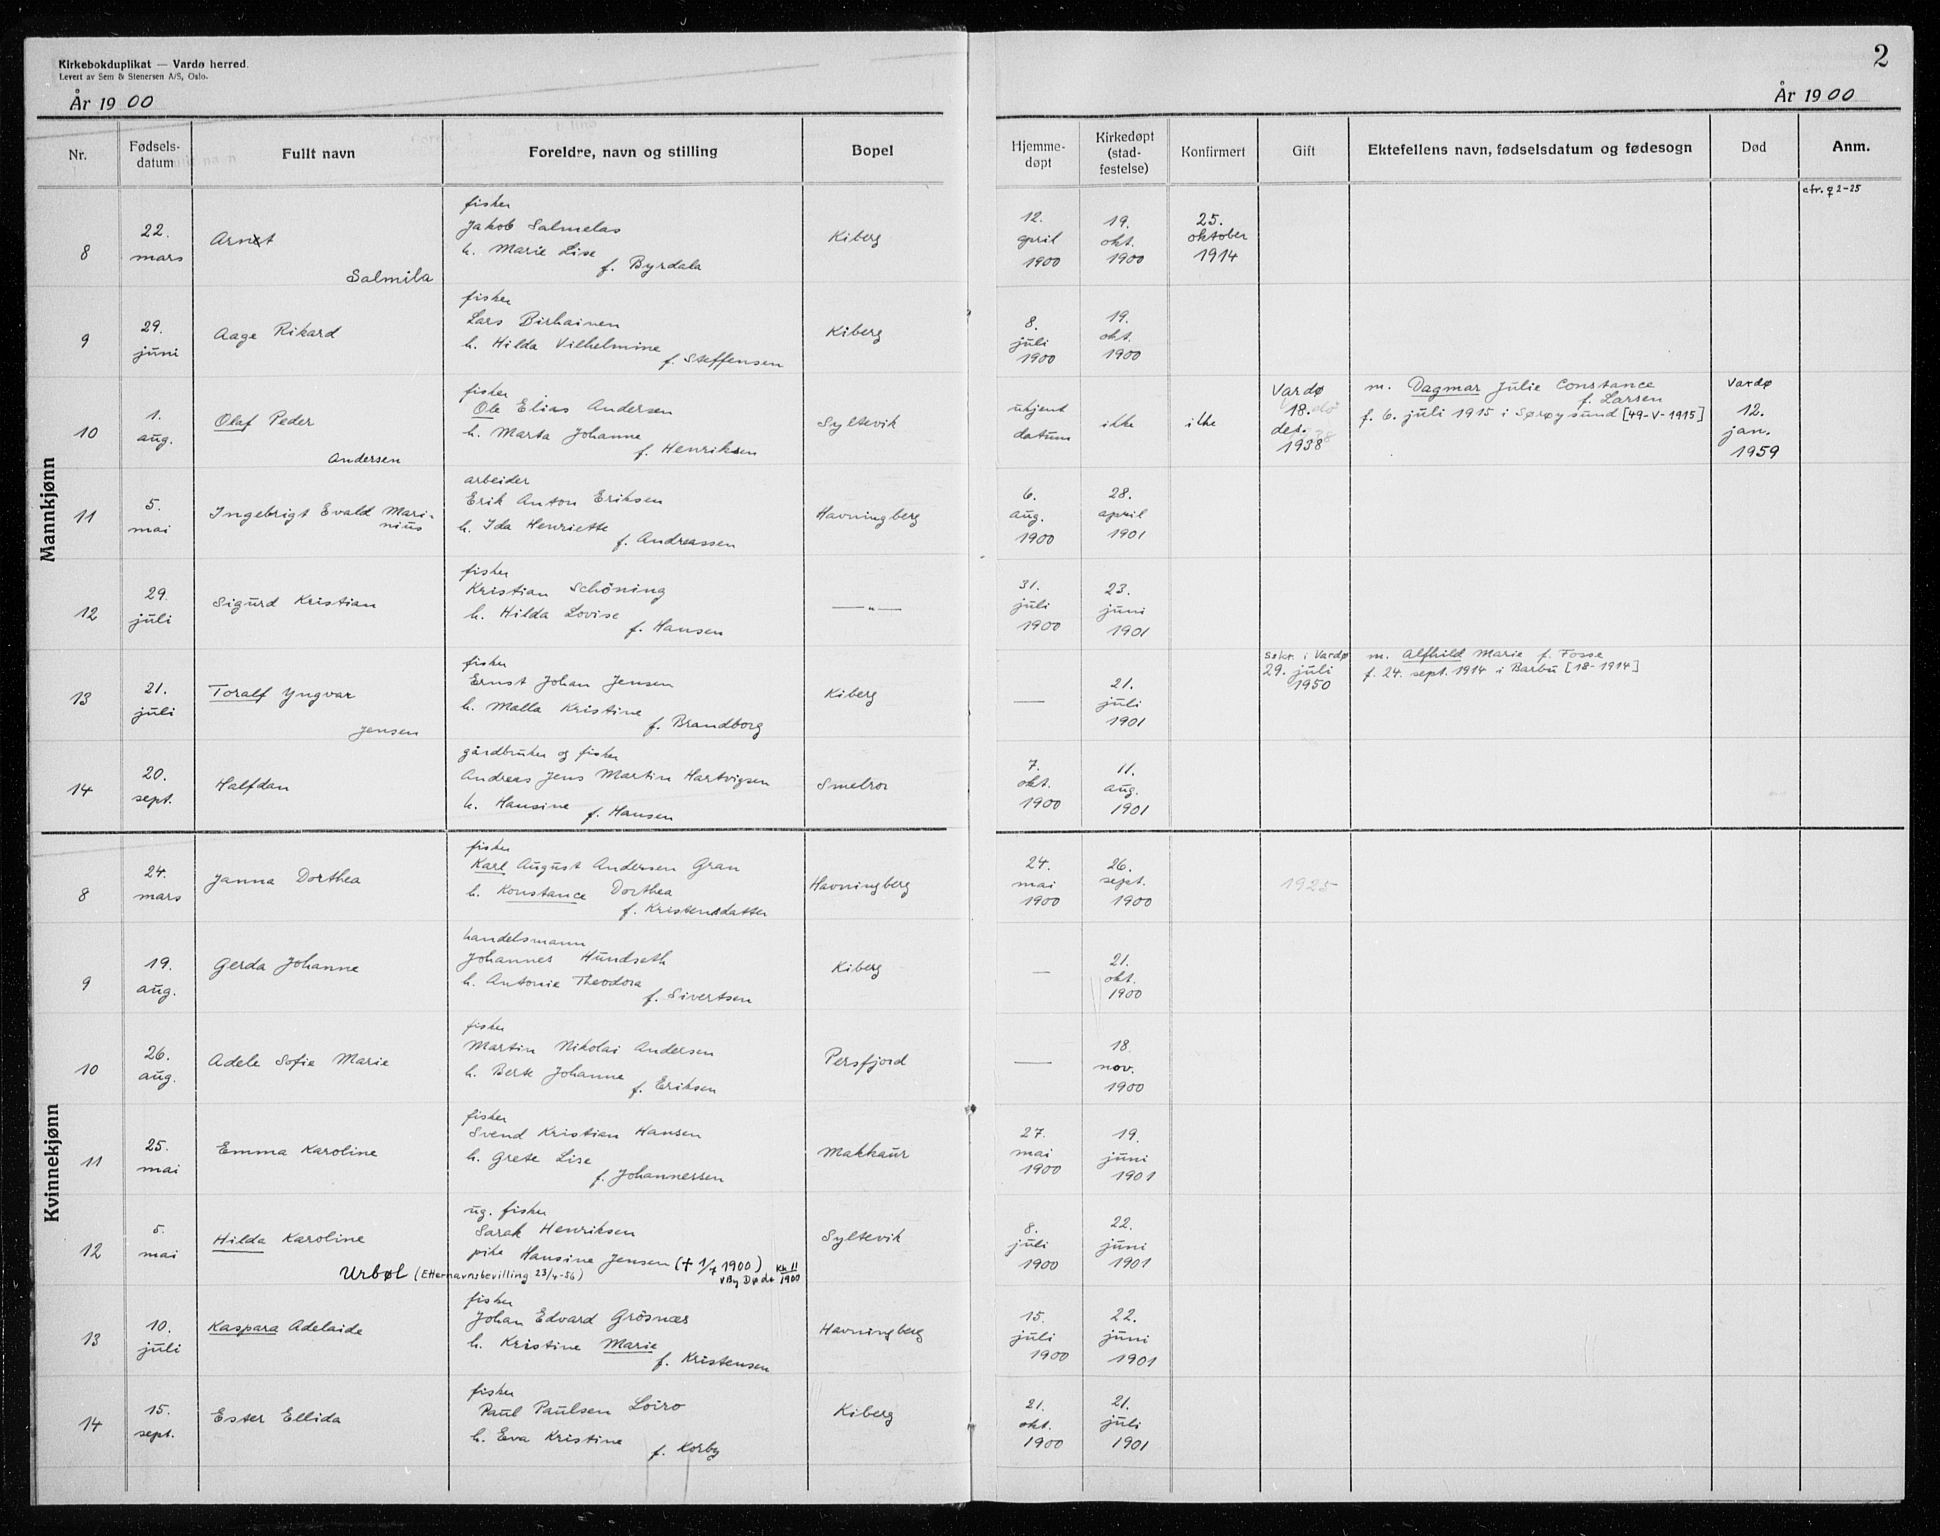 Kirkebokduplikat — Vardø herred.
Levert av Sem & Stenersen A/S, Oslo.
2
År 1900
År 1900
Nr. Fødsels-datum Fullt navn Foreldre, navn og stilling Bopel Hjemme-døpt Kirkedøpt (stad-festelse) Konfirmert Gift Ektefellens navn, fødselsdatum og fødesogn Død Anm.
Mannkjønn
cfr. ♀ 2-25
8 22. mars
Salmila
fisker
Jakob Salmelas
h. Marie Lise
f. Byrdala
Kiberg
12. april 1900
19. okt. 1900
25. oktober 1914
9 29. juni
Aage Rikard
fisker
Lars Birhainen
h. Hilda Vilhelmine
f. Steffensen
Kiberg
8. juli 1900
19. okt. 1900
10 1. aug.
Olaf Peder
Andersen
fisker
Ole Elias Andersen
h. Marta Johanne
f. Henriksen
Syltevik
ukjent datum
ikke
ikke
Vardø
18. des. 1938
m. Dagmar Julie Constance
f. Larsen
f. 6. juli 1915 i Sørøysund [49-V-1915]
Vardø
12. jan. 1959
11 5. mai
Ingebrigt Evald Mari-
nius
arbeider
Erik Anton Eriksen
h. Ida Henriette
f. Andreassen
Havningberg
6. aug. 1900
28. april 1901
12 29. juli
Sigurd Kristian
fisker
Kristian Schöning
h. Hilda Lovise
f. Hansen
—"—
31. juli 1900
23. juni 1901
13 21. juli
Toralf Yngvar
Jensen
fisker
Ernst Johan Jensen
h. Malla Kristine
f. Brandborg
Kiberg
—
21. juli 1901
Sokr. i Vardø
29. juli 1950
m. Alfhild Marie f. Fosse
f. 24. sept. 1914 i Barbu [18-1914]
14 20. sept.
Halfdan
gårdbruker og fisker
Andreas Jens Martin Hartvigsen
h. Hansine
f. Hansen
Smelror
7. okt. 1900
11. aug. 1901
Kvinnekjønn
8 24. mars
Janna Dorthea
fisker
Karl August Andersen Gran
h. Konstance Dorthea
f. Kristensdatter
Havningberg
24. mai 1900
26. sept. 1900
1925
9 19. aug.
Gerda Johanne
handelsmann
Johannes Hundseth
h. Antonie Theodora
f. Sivertsen
Kiberg
—
21. okt. 1900
10 26. aug.
Adele Sofie Marie
fisker
Martin Nikolai Andersen
h. Berte Johanne
f. Eriksen
Persfjord
—
18. nov. 1900
11 25. mai
Emma Karoline
fisker
Svend Kristian Hansen
h. Grete Lise
f. Johannessen
Makkaur
27. mai 1900
19. juni 1901
12 5. mai
Hilda Karoline
Urbøl (Etternavnsbevilling 23/4-56)
ug. fisker
Sarak Henriksen
pike Hansine Jensen (✝ 1/7 1900)
v By Døde 1900
Syltevik
8. juli 1900
22. juni 1901
13 10. juli
Kaspara Adelaide
fisker
Johan Edvard Grösnæs
h. Kristine Marie
f. Kristensen
Havningberg
15. juli 1900
22. juni 1901
14 15. sept.
Ester Ellida
fisker
Paul Paulsen Loiro
h. Eva Kristine
f. Korby
Kiberg
21. okt. 1900
21. juli 1901